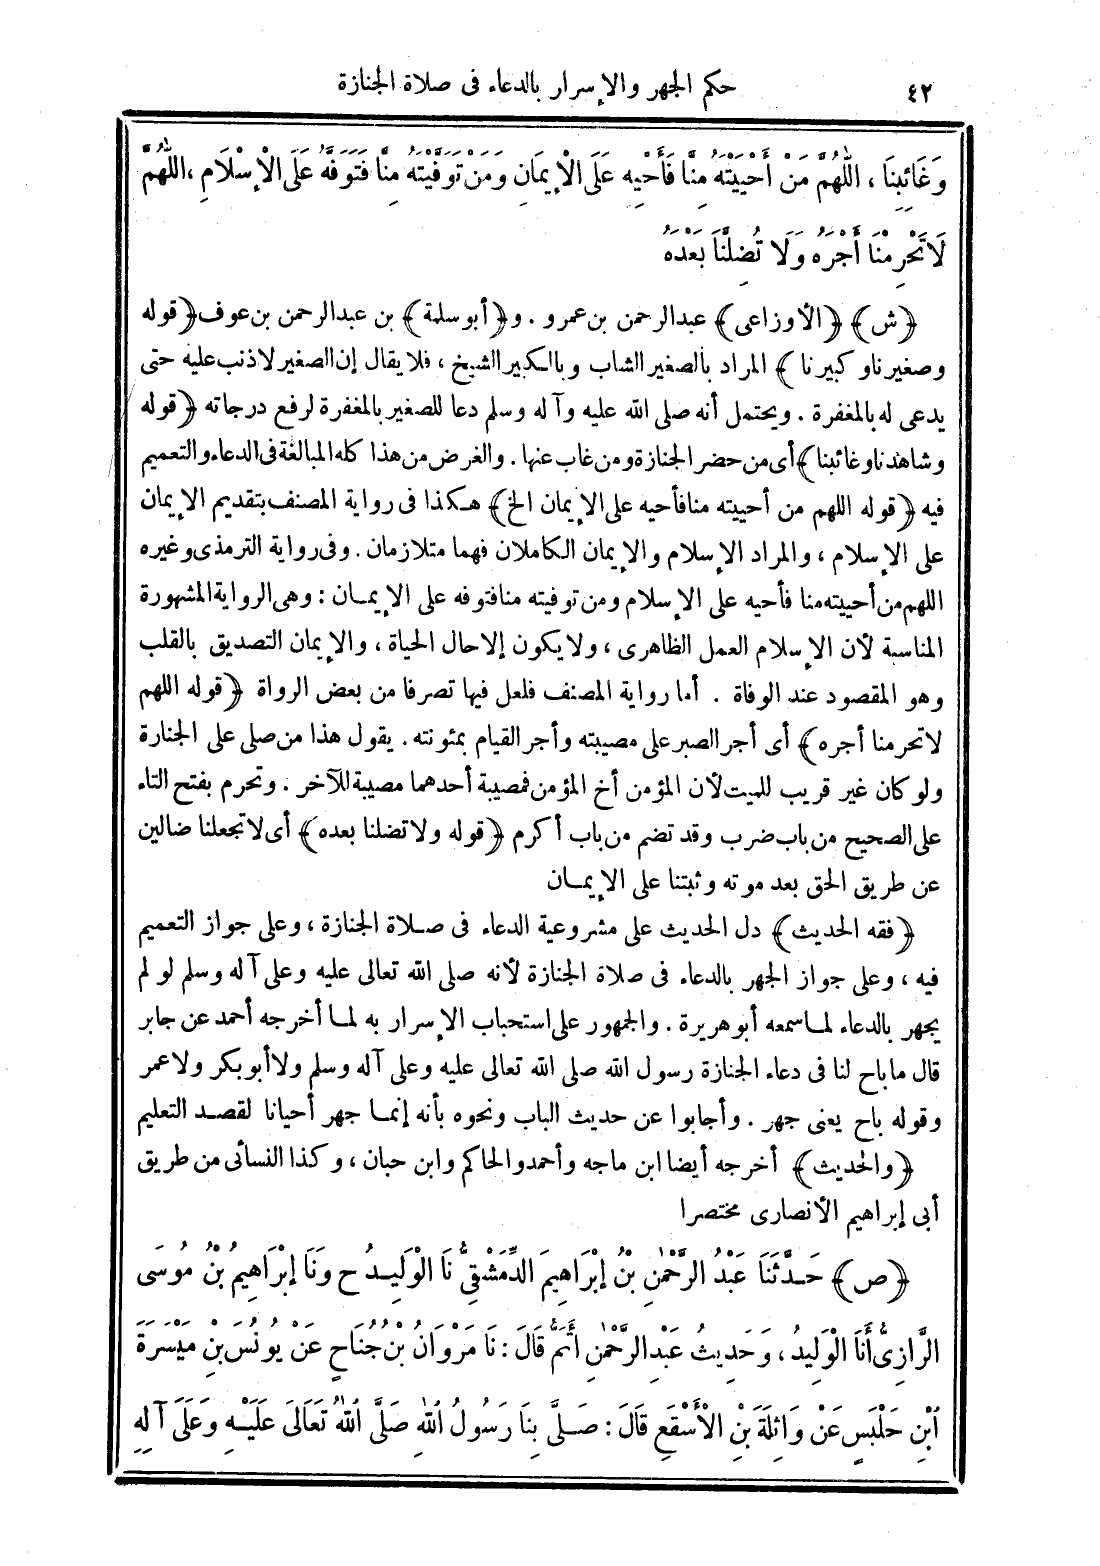 ٤٢
حكم الجهر والإسرار بالدعاء فى صلاة الجنازة
وَغَائِبِنَا ، اللَّهُمَّ مَنْ أَحْيَيْتَهُ مِنَّا فَأَحْيِهِ عَلَى الْإِيمَانِ وَمَنْ تَوَفَّيْتَهُ مِنَّا فَتَوَفَّهُ عَلَى الْإِسْلَامِ ، اللَّهُمَّ
لَا تَحْرِمْنَا أَجْرَهُ وَلَا تُضِلَّنَا بَعْدَهُ
﴿ش﴾ ﴿الأوزاعى﴾ عبدالرحمن بن عمرو . و﴿أبو سلمة﴾ بن عبدالرحمن بن عوف ﴿قوله
وصغيرنا وكبيرنا﴾ المراد بالصغير الشاب وبالكبير الشيخ ، فلا يقال إن الصغير لا ذنب عليه حتى
يدعى له بالمغفرة . ويحتمل أنه صلى الله عليه وآله وسلم دعا للصغير بالمغفرة لرفع درجاته ﴿قوله
وشاهدنا وغائبنا﴾ أى من حضر الجنازة ومن غاب عنها . والغرض من هذا كله المبالغة فى الدعاء والتعميم
فيه ﴿قوله اللهم من أحييته منا فأحيه على الإيمان الخ﴾ هكذا فى رواية المصنف بتقديم الإيمان
على الإسلام ، والمراد الإسلام والإيمان الكاملان فهما متلازمان . وفى رواية الترمذى وغيره
اللهم من أحييته منا فأحيه على الإسلام ومن توفيته منا فتوفه على الإيمان : وهى الرواية المشهورة
المناسبة لأن الإسلام العمل الظاهرى ، ولا يكون إلا حال الحياة ، والإيمان التصديق بالقلب
وهو المقصود عند الوفاة . أما رواية المصنف فلعل فيها تصرفا من بعض الرواة ﴿قوله اللهم
لا تحرمنا أجره﴾ أى أجر الصبر على مصيبته وأجر القيام بمئونته . يقول هذا من صلى على الجنازة
ولو كان غير قريب للميت لأن المؤمن أخ المؤمن فمصيبة أحدهما مصيبة للآخر . وتحرم بفتح التاء
على الصحيح من باب ضرب وقد تضم من باب أكرم ﴿قوله ولا تضلنا بعده﴾ أى لا تجعلنا ضالين
عن طريق الحق بعد موته وثبتنا على الإيمان
﴿فقه الحديث﴾ دل الحديث على مشروعية الدعاء فى صلاة الجنازة ، وعلى جواز التعميم
فيه ، وعلى جواز الجهر بالدعاء فى صلاة الجنازة لأنه صلى الله تعالى عليه وعلى آله وسلم لو لم
يجهر بالدعاء لما سمعه أبو هريرة . والجمهور على استحباب الإسرار به لما أخرجه أحمد عن جابر
قال ما باح لنا فى دعاء الجنازة رسول الله صلى الله تعالى عليه وعلى آله وسلم ولا أبو بكر ولا عمر
وقوله باح يعنى جهر . وأجابوا عن حديث الباب ونحوه بأنه إنما جهر أحيانا لقصد التعليم
﴿والحديث﴾ أخرجه أيضا ابن ماجه وأحمد والحاكم وابن حبان ، وكذا النسائى من طريق
أبى إبراهيم الأنصارى مختصرا
﴿ص﴾ حَدَّثَنَا عَبْدُ الرَّحْمٰنِ بْنُ إِبْرَاهِيمَ الدِّمَشْقِىُّ نَا الْوَلِيدُ ح وَنَا إِبْرَاهِيمُ بْنُ مُوسَى
الرَّازِىُّ أَنَا الْوَلِيدُ ، وَحَدِيثُ عَبْدِ الرَّحْمٰنِ أَتَمُّ قَالَ : نَا مَرْوَانُ بْنُ جُنَاحٍ عَنْ يُونُسَ بْنِ مَيْسَرَةَ
ابْنِ حَلْبَسٍ عَنْ وَاثِلَةَ بْنِ الْأَسْقَعِ قَالَ : صَلَّى بِنَا رَسُولُ اللهِ صَلَّى اللهُ تَعَالَى عَلَيْهِ وَعَلَى آلِهِ